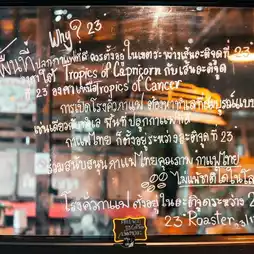 Why? 23
พื้นที่
ปลูกกาแฟที่ดี ควรตั้งอยู่ ในเขตระหว่างเส้นละติจูดที่ 23
องศาใต้ Tropics of Capricorn กับเส้นละติจูด
ที่ 23 องศาเหนือ Tropics of Cancer
การเปิดโรงคั่วกาแฟ ต้องหาทำเลที่สมบูรณ์แบบ
เช่นเดียวกับ พื้นที่ ปลูกกาแฟ
กาแฟไทย ก็ตั้งอยู่ระหว่างละติจูดที่ 23
ร่วมสนับสนุนกาแฟไทยคุณภาพ กาแฟไทย
ไม่แพ้ชาติใดในโลก
โรงคั่วกาแฟ ตั้งอยู่ในละติจูดระหว่าง 2
23 Roaster